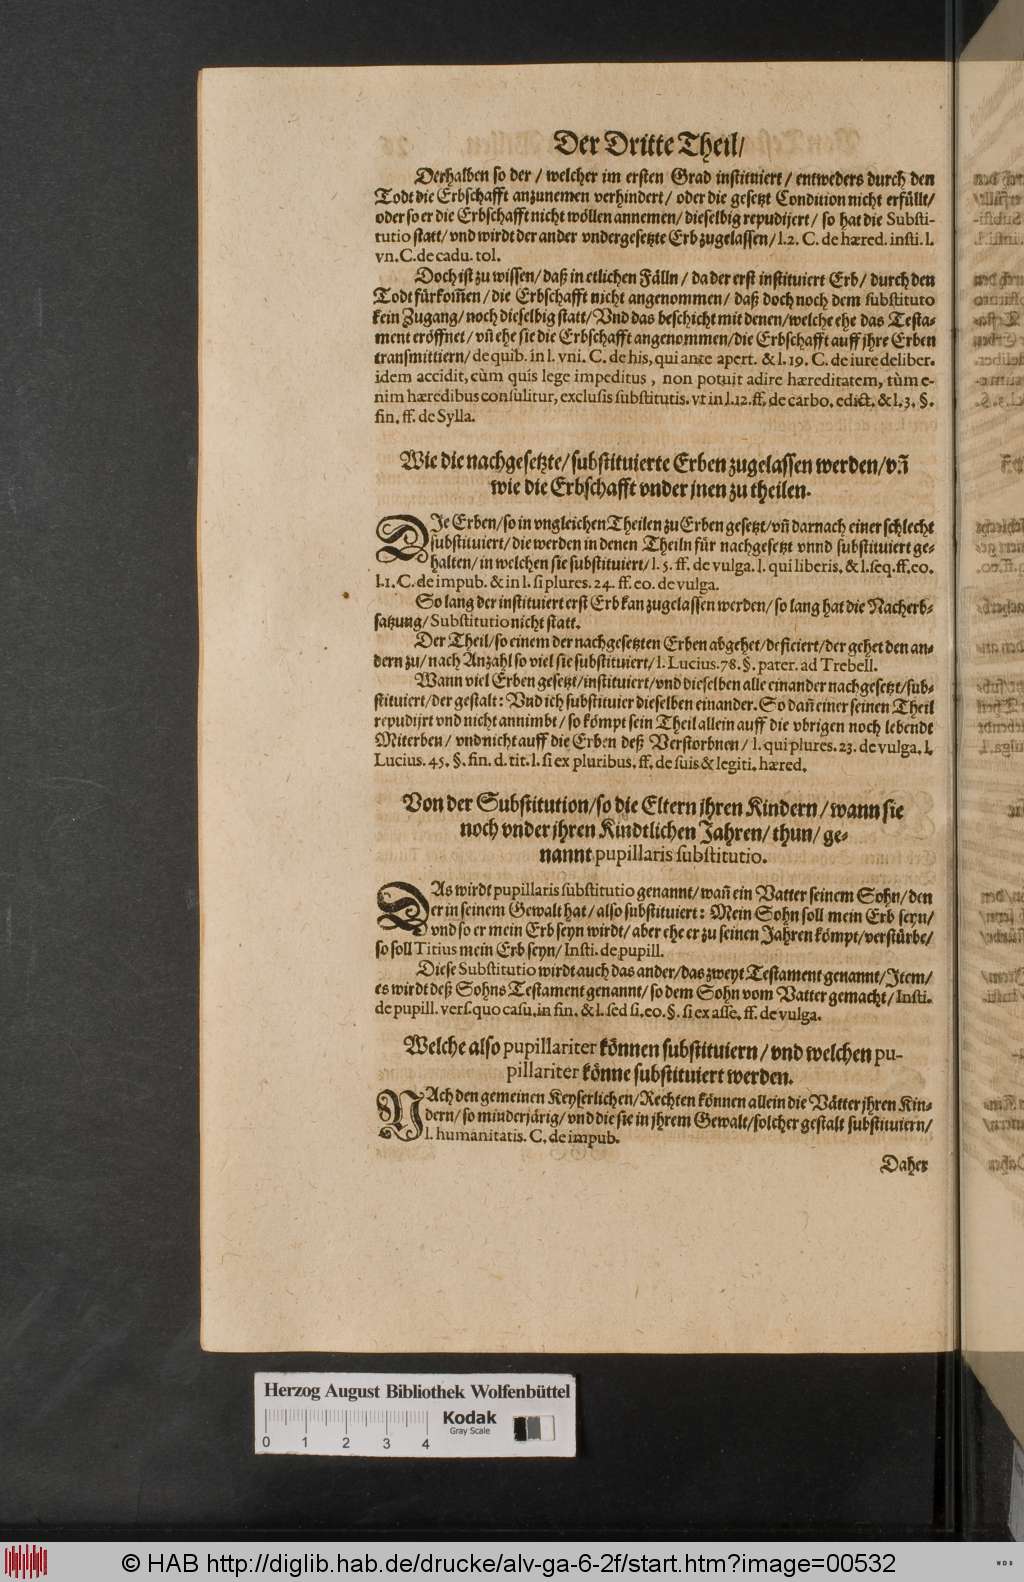 Der Dritte Theil/
Derhalben so der / welcher im ersten Grad instituiert / entweders durch den
Todt die Erbschafft anzunemen verhindert / oder die gesetzt Condition nicht erfüllt/
oder so er die Erbschafft nicht wöllen annemen/ dieselbig repudijert/ so hat die Substi-
tutio statt/ vnd wirdt der ander vndergesetzte Erb zugelassen/ l.2. C. de hæred. insti. l.
vn. C. de cadu. tol.
Doch ist zu wissen/ daß in etlichen Fälln / da der erst instituiert Erb/ durch den
Todt fürkom̃en / die Erbschafft nicht angenommen / daß doch noch dem substituto
kein Zugang/ noch dieselbig statt/ Vnd das beschicht mit denen/ welche ehe das Testa-
ment eröffnet/ vñ ehe sie die Erbschafft angenommen/ die Erbschafft auff jhre Erben
transmittiern/ de quib. in l. vni. C. de his, qui ante apert. & l. 19. C. de iure deliber.
idem accidit, cùm quis lege impeditus, non potuit adire hæreditatem, tùm e-
nim hæredibus consulitur, exclusis substitutis. vt in l.12. ff. de carbo. edict. & l. 3. §.
fin. ff. de Sylla.
Wie die nachgesetzte/ substituierte Erben zugelassen werden/ vñ
wie die Erbschafft vnder jnen zu theilen.
DIe Erben/ so in vngleichen Theilen zu Erben gesetzt/ vñ darnach einer schlecht
substituiert/ die werden in denen Theiln für nachgesetzt vnnd substituiert ge-
halten/ in welchen sie substituiert/ l. 5. ff. de vulga. l. qui liberis. & l. seq. ff. eo.
l.1. C. de impub. & in l. si plures. 24. ff. eo. de vulga.
So lang der instituiert erst Erb kan zugelassen werden/ so lang hat die Nacherb-
satzung/ Substitutio nicht statt.
Der Theil/ so einem der nachgesetzten Erben abgehet/ deficiert/ der gehet den an-
dern zu/ nach Anzahl so viel sie substituiert/ l. Lucius. 78. §. pater. ad Trebell.
Wann viel Erben gesetzt/ instituiert/ vnd dieselben alle einander nachgesetzt/ sub-
stituiert/ der gestalt: Vnd ich substituier dieselben einander. So dañ einer seinen Theil
repudijrt vnd nicht annimbt/ so kömpt sein Theil allein auff die vbrigen noch lebendt
Miterben/ vnd nicht auff die Erben deß Verstorbnen/ l. qui plures. 23. de vulga. l.
Lucius. 45. §. fin. d. tit. l. si ex pluribus. ff. de suis & legiti. hæred.
Von der Substitution/ so die Eltern jhren Kindern/ wann sie
noch vnder jhren Kindtlichen Jahren/ thun/ ge-
nannt pupillaris substitutio.
DAs wirdt pupillaris substitutio genannt/ wañ ein Vatter seinem Sohn/ den
er in seinem Gewalt hat/ also substituiert: Mein Sohn soll mein Erb seyn/
vnd so er mein Erb seyn wirdt/ aber ehe er zu seinen Jahren kömpt/ verstürbe/
so soll Titius mein Erb seyn/ Insti. de pupill.
Diese Substitutio wirdt auch das ander/ das zweyt Testament genannt/ Item/
es wirdt deß Sohns Testament genannt/ so dem Sohn vom Vatter gemacht/ Insti.
de pupill. vers. quo casu, in fin. & l. sed si. eo. §. si ex asse. ff. de vulga.
Welche also pupillariter können substituiern/ vnd welchen pu-
pillariter könne substituiert werden.
NAch den gemeinen Keyserlichen/ Rechten können allein die Vätter jhren Kin-
dern/ so minderjärig/ vnd die sie in jhrem Gewalt/ solcher gestalt substituiern/
l. humanitatis. C. de impub.
Daher
Herzog August Bibliothek Wolfenbüttel
Kodak
Gray Scale
0 1 2 3 4
© HAB http://diglib.hab.de/drucke/alv-ga-6-2f/start.htm?image=00532